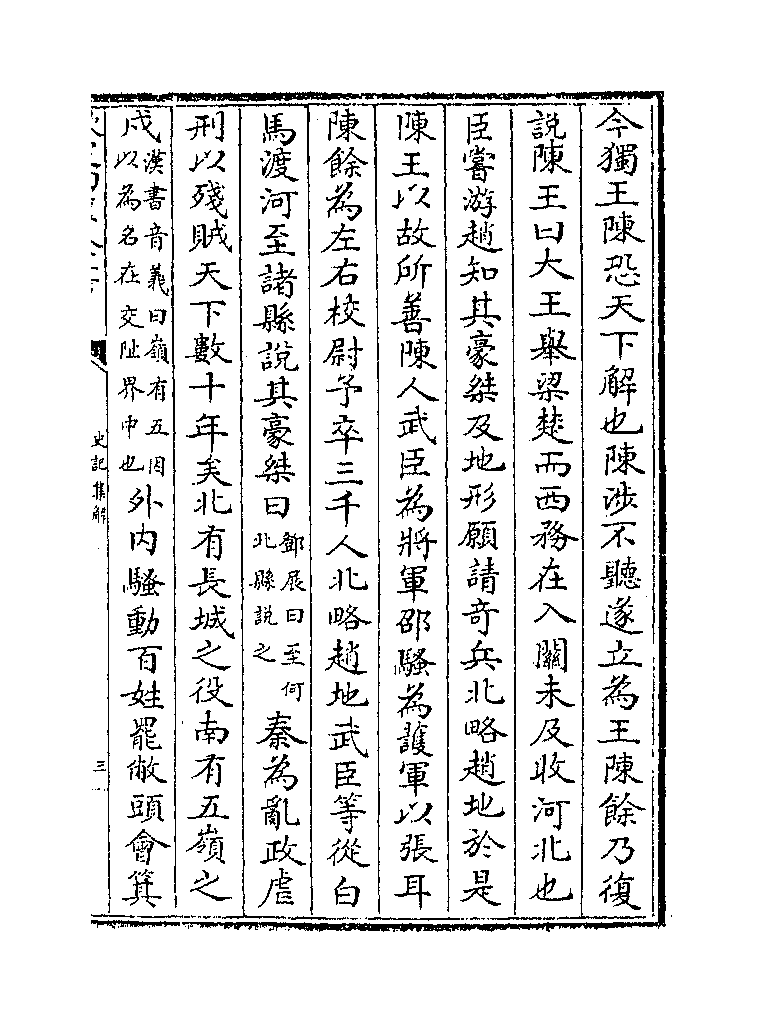 今獨王陳恐天下解也陳涉不聽遂立為王陳餘乃復
說陳王曰大王舉梁楚而西務在入關未及收河北也
臣嘗游趙知其豪桀及地形願請奇兵北略趙地於是
陳王以故所善陳人武臣為將軍邵騷為護軍以張耳
陳餘為左右校尉予卒三千人北略趙地武臣等從白
馬渡河至諸縣說其豪桀曰鄧展曰至何北縣說之秦為亂政虐
刑以殘賊天下數十年矣北有長城之役南有五嶺之
戍漢書音義曰嶺有五因以為名在交阯界中也外内騷動百姓罷敝頭會箕
史記集解
三